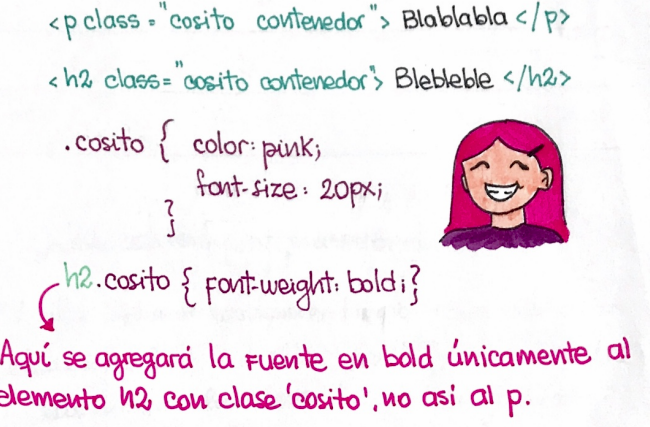 <p class="cosito contenedor"> Blablabla </p>
<h2 class="cosito contenedor"> Blebleble </h2>
.cosito { color: pink;
font-size: 20px;
}
h2.cosito { font-weight: bold; }
Aquí se agregará la fuente en bold únicamente al
elemento h2 con clase 'cosito', no así al p.